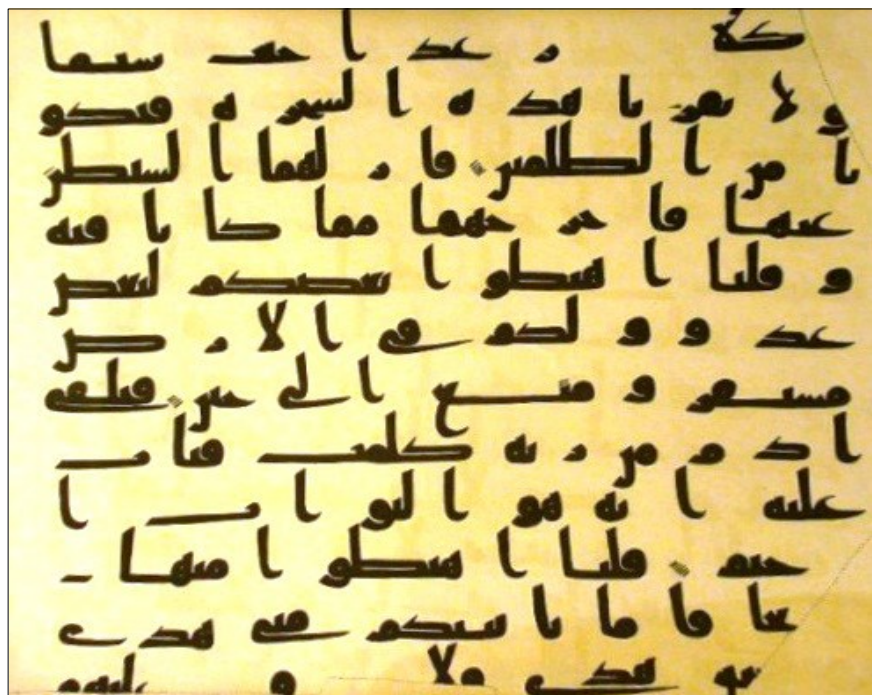 كلا رغدا حيث شئتما
ولا تقربا هذه الشجرة فتكو
نا من الظلمين فازلهما الشيطن
عنها فاخرجهما مما كانا فيه
وقلنا اهبطوا بعضكم لبعض
عدو ولكم في الارض
مستقر ومتع الى حين فتلقى
ادم من ربه كلمت فتاب
عليه انه هو التواب ا
لرحيم قلنا اهبطوا منها ج
ميعا فاما ياتينكم مني هدى